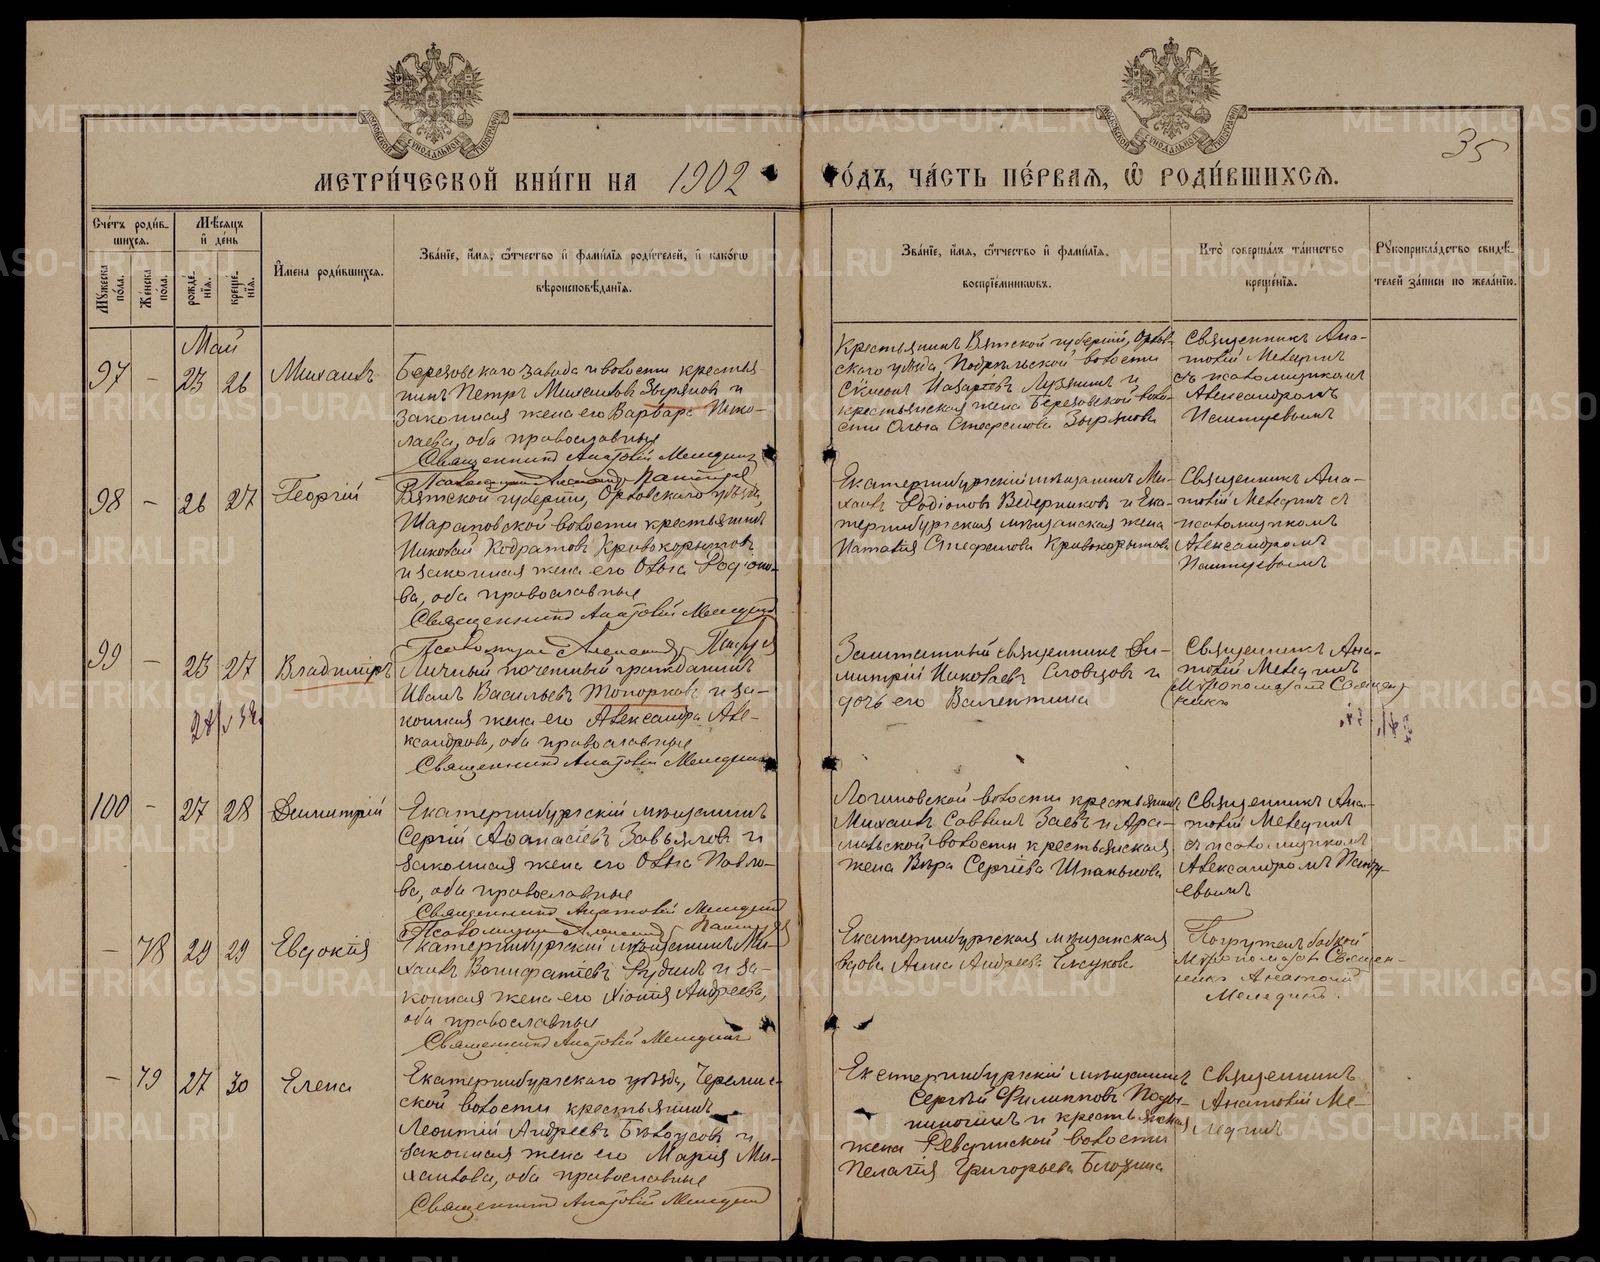 МЕТРИ́ЧЕСКОЙ КНИ́ГИ НА 1902 ГО́ДЪ, ЧА́СТЬ ПЕ́РВАЯ, Ѡ҆ РОДИ́ВШИХСЯ.
35
Сче́тъ роди́в-
шихся.
Мѣ́сяцъ
и҆ де́нь
Мꙋ́жеска по́ла.
Же́нска по́ла.
рожде́-
нїя.
креще́-
нїя.
И҆мена роди́вшихся.
Зва́нїе, и҆́мя, ѻ҆́тчество и҆ фами́лїя роди́телей, и҆ како́гѡ
вѣроисповѣ́данїя.
Зва́нїе, и҆́мя, ѻ҆́тчество и҆ фами́лїя
воспрїе́мникѡвъ.
Кто̀ соверша́лъ та́инство
креще́нїя.
Рꙋкоприкла́дство свидѣ́-
телей за́писи по жела́нїю.
Май
97 - 23 26 Михаилъ
Березовскаго завода и волости крестья
нинъ Петръ Михаиловъ Зырянов и
законная жена его Варвара Нико-
лаева, оба православные
Священникъ Анатолій Меледин
Крестьянинъ Вятской губерніи, Орлов-
скаго уѣзда, Подрельской волости
Симеон Назаріевъ Лузянинъ и
крестьянская жена Березовской воло-
сти Ольга Стефанова Зырянова
Священникъ Ана-
толій Меледин
съ псаломщикомъ
Александромъ
98 - 26 27 Георгій
Вятской губерніи, Орловскаго уѣзда,
Шарановской волости крестьянинъ
Николай Кодратовъ Кривокорытовъ
и законная жена его Ольга Родіоно-
ва, оба православные
Священникъ Анатолій Меледин
Екатеринбургскій мѣщанинъ Ми-
хаилъ Родіоновъ Ведерниковъ и Ека-
теринбургская мѣщанская жена
Наталія Стефанова Кривокорытова
Священникъ Ана-
толій Меледин съ
псаломщикомъ
Александромъ
99 - 23 27 Владиміръ
Личный почетный гражданинъ
Иванъ Васильевъ Топорковъ и за-
конная жена его Александра Але-
ксандрова, оба православные
Священникъ Анатолій Меледин
Заштатный священникъ Ди-
митрій Николаевъ Словцовъ и
дочь его Валентина
Священникъ Ана-
толій Меледин
100 - 27 28 Димитрій
Екатеринбургскій мѣщанинъ
Сергій Аѳанасіевъ Завьялов и
законная жена его Ольга Павло-
ва, оба православные
Священникъ Анатолій Меледин
Логиновской волости крестьянин
Михаилъ Саввинъ Заевъ и Ара-
мильской волости крестьянская
жена Вѣра Сергіева Шпанькова
Священникъ Ана-
толій Меледин
съ псаломщикомъ
Александромъ
- 78 29 29 Евдокія
Екатеринбургскій мѣщанинъ Ми-
хаилъ Вонифатіевъ Рудинъ и за-
конная жена его Хіонія Андреева,
оба православные
Священникъ Анатолій Меледин
Екатеринбургская мѣщанская
вдова Анна Андреева Елсукова
Погружалъ бабкой
Мѵропомазалъ Священ-
никъ Анатолій
Меледин.
- 79 27 30 Елена
Екатеринбургскаго уѣзда, Черемис-
ской волости крестьянинъ
Леонтій Андреевъ Бѣлоусов и
законная жена его Марія Ми-
хаилова, оба православные
Священникъ Анатолій Меледин
Екатеринбургскій мѣщанинъ
Сергѣй Филипповъ
и крестьянская
жена Ревдинской волости
Пелагія Григорьева
Священникъ
Анатолій Ме-
ледин
METRIKI.GASO-URAL.RU